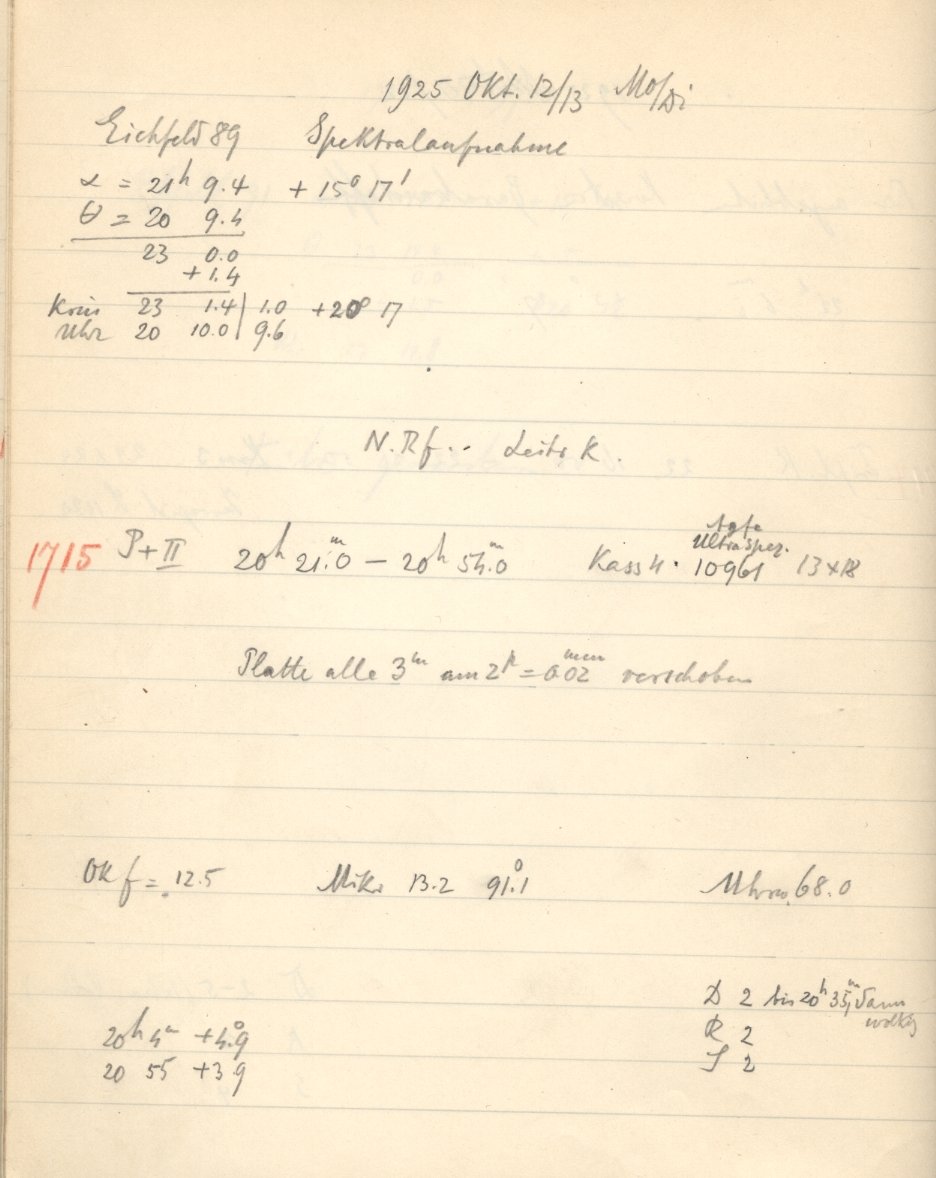 1925 Okt. 12/13 Mo/Di
Eichfeld 89 Spektralaufnahme
α = 21h 9.4 + 15° 17'
θ = 20 9.4
23 0.0
+ 1.4
Kreis 23 1.4 | 1.0 +20° 17
Uhr 20 10.0 | 9.6
N. Rf. - Leitr K.
Agfa
Ultra Spez.
1715 P + II 20h 21m.0 – 20h 54m.0 Kass 4. 10961 13 x 18
Platte alle 3m um 2R = 0.02mm verschoben
OK f = 12.5 Mikr 13.2 91°.1 Uhrw. 68.0
D 2 bis 20h 35m, dann
wolkig
20h 4m +4°.9 R 2
20 55 +3 9 S 2